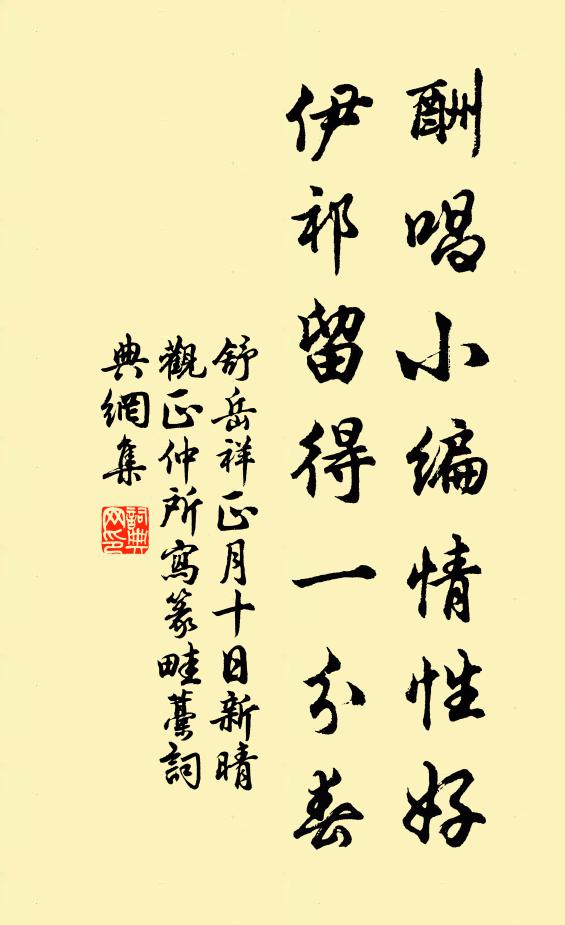 酬唱小编情性好
伊祁留得一分春
舒岳祥正月十日新晴
觀正仲所寫篆畦藁詞
典網集
詞典网印